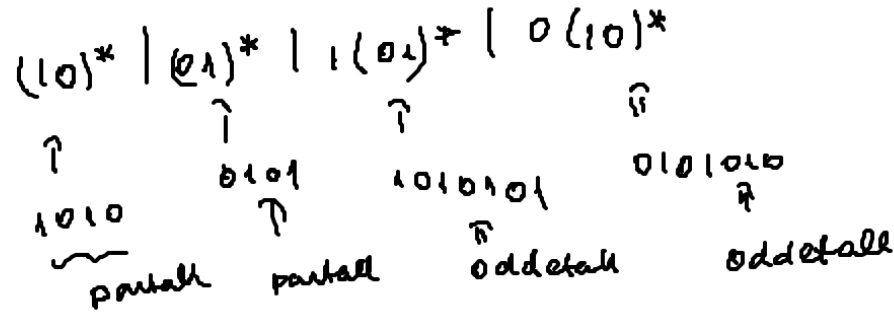 (10)* | (01)* | 1(01)* | 0(10)*
1010 0101 1010101 0101010
partall partall oddetall oddetall